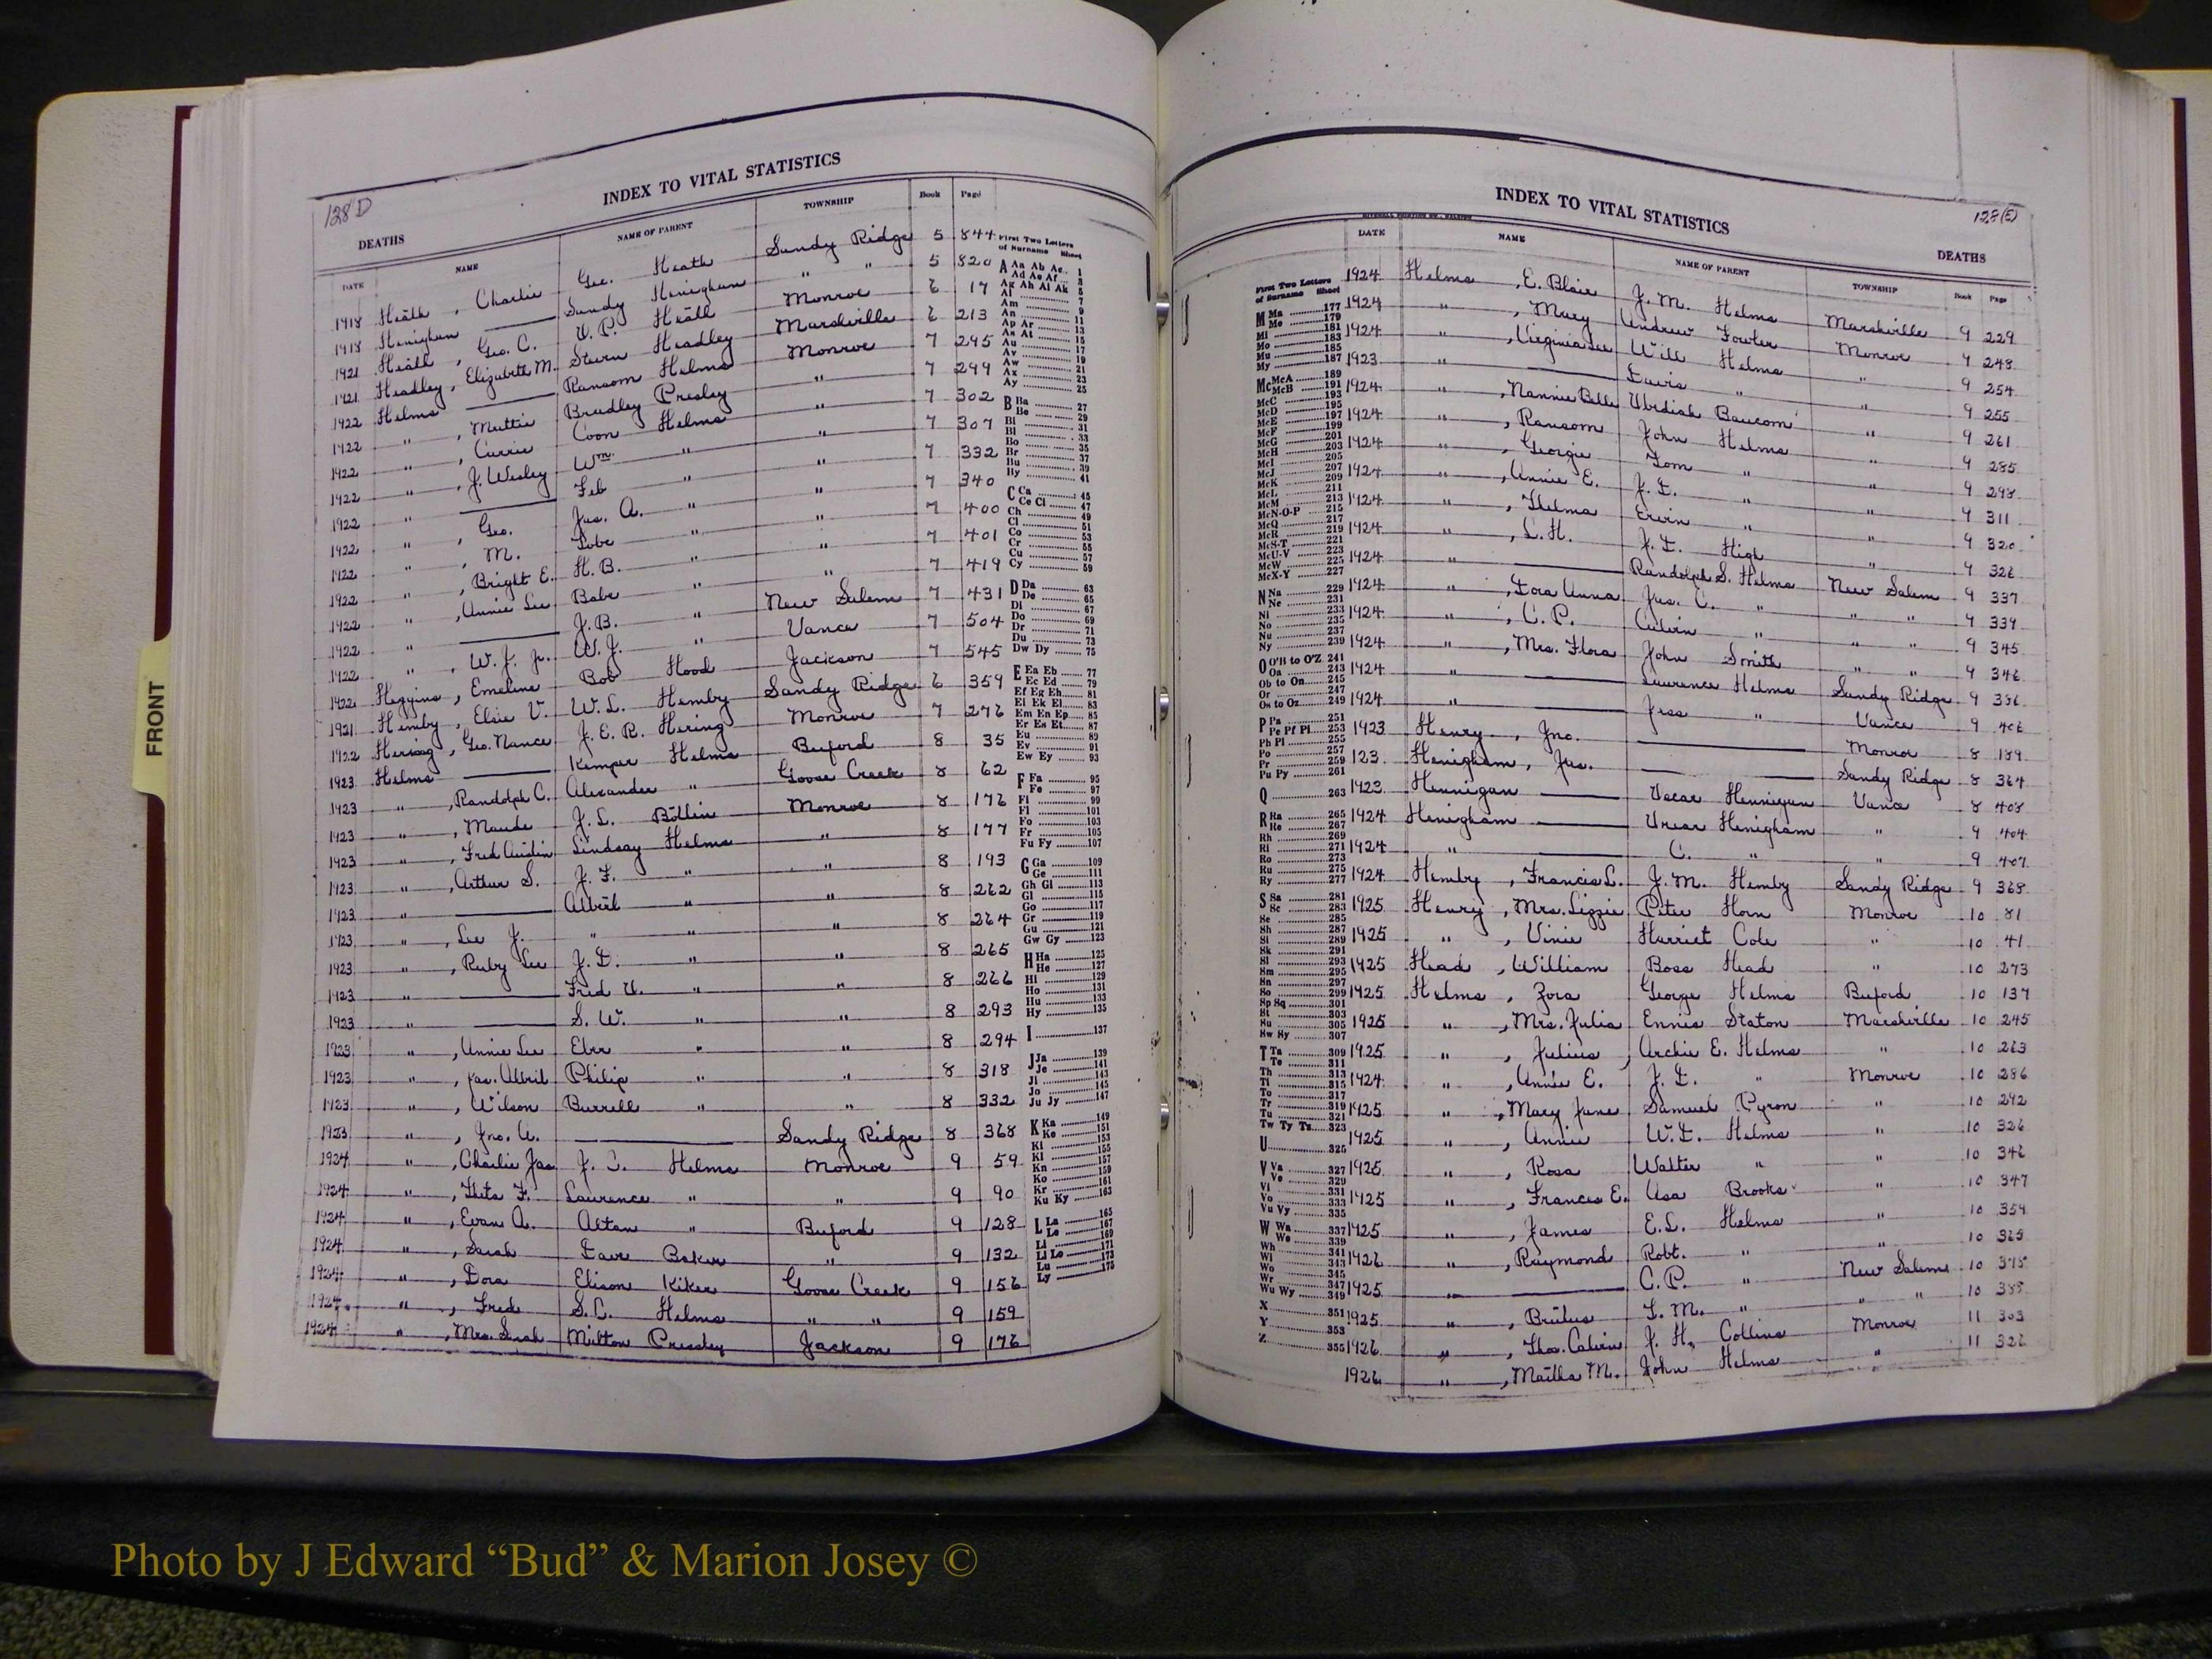 INDEX TO VITAL STATISTICS
128 D
DEATHS
DATE NAME NAME OF PARENT TOWNSHIP Book Page
1918 Heath , Charlie Geo. Heath Sandy Ridge 5 844
1918 Henigham —— Sandy Henigham " " 5 820
1921 Heath , Geo. C. W. P. Heath Monroe 6 17
1921 Headley , Elizabeth M. Steven Headley Marshville 6 213
1922 Helms —— Ransom Helms Monroe 7 295
1922 " , Mattie Bradley Presley " 7 299
1922 " , Carrie Coon Helms " 7 302
1922 " , J. Wesley Wm. " " 7 307
1922 " —— Feb " " 7 332
1922 " , Geo. Jas. A. " " 7 340
1922 " , M. Tobe " " 7 400
1922 " , Bright E. H. B. " " 7 401
1922 " , Annie Lee Babe " " 7 419
1922 " —— J. B. " New Salem 7 431
1922 " , W. J. Jr. W. J. " Vance 7 504
1922 Heggins , Emeline Bob Hood Jackson 7 545
1921 Hemby , Elsie V. W. L. Hemby Sandy Ridge 6 359
1922 Hering , Geo. Nance J. E. R. Hering Monroe 7 276
1923 Helms —— Kemper Helms Buford 8 35
1923 " , Randolph C. Alexander " Goose Creek 8 62
1923 " , Maude J. L. Monroe 8 176
1923 " , Fred Austin Lindsay Helms " 8 177
1923 " , Arthur S. J. F. " " 8 193
1923 " —— Albert " " 8 262
1923 " , Lee J. " " " 8 264
1923 " , Ruby Lee J. D. " " 8 265
1923 " —— Fred U. " " 8 266
1923 " —— S. W. " " 8 293
1923 " , Annie Lee Eber " " 8 294
1923 " , Jas. Albert Philip " " 8 318
1923 " , Wilson Burrell " " 8 332
1923 " , Jno. A. —— Sandy Ridge 8 368
1924 " , Charlie Jas J. C. Helms Monroe 9 59
1924 " , Theta F. Laurence " " 9 90
1924 " , Evan A. Altan " Buford 9 128
1924 " , Sarah Dave Baker " 9 132
1924 " , Dora Elison Kiker Goose Creek 9 156
1924 " , Fred S. C. Helms " " 9 159
1924 " , Mrs. Sarah Milton Pressley Jackson 9 176
First Two Letters
of Surname Sheet
A Aa Ab Ac 1
Ad Ae Af 3
Ag Ah Ai Ak 5
Al 7
Am 9
An 11
Ap Ar 13
As At 15
Au 17
Av 19
Aw 21
Ax 23
Ay 25
B Ba 27
Be 29
Bi 31
Bl 33
Bo 35
Br 37
Bu 39
By 41
C Ca 45
Ce Ci 47
Ch 49
Cl 51
Co 53
Cr 55
Cu 57
Cy 59
D Da 63
De 65
Di 67
Do 69
Dr 71
Du 73
Dw Dy 75
E Ea Eb 77
Ec Ed 79
Ef Eg Eh 81
Ei Ek El 83
Em En Ep 85
Er Es Et 87
Eu 89
Ev 91
Ew Ey 93
F Fa 95
Fe 97
Fi 99
Fl 101
Fo 103
Fr 105
Fu Fy 107
G Ga 109
Ge 111
Gh Gi 113
Gl 115
Go 117
Gr 119
Gu 121
Gw Gy 123
H Ha 125
He 127
Hi 129
Ho 131
Hu 133
Hy 135
I 137
J Ja 139
Je 141
Ji 143
Jo 145
Ju Jy 147
K Ka 149
Ke 151
Ki 153
Kl 155
Kn 157
Ko 159
Kr 161
Ku Ky 163
L La 165
Le 167
Li 169
Ll Lo 171
Lu 173
Ly 175
INDEX TO VITAL STATISTICS
128(E)
DEATHS
DATE NAME NAME OF PARENT TOWNSHIP Book Page
1924 Helms , E. Blair J. M. Helms Marshville 9 229
1924 " , Mary Andrew Fowler Monroe 9 248
1924 " , Virginia Lee Will Helms " 9 254
1923 " —— Davis " " 9 255
1924 " , Nannie Belle Obediah Baucom " 9 261
1924 " , Ransom John Helms " 9 285
1924 " , Georgie Tom " " 9 298
1924 " , Annie E. J. D. " " 9 311
1924 " , Thelma Ervin " " 9 320
1924 " , L. H. J. D. High " 9 326
1924 " —— Randolph S. Helms New Salem 9 337
1924 " , Dora Anna Jas. C. " " " 9 339
1924 " , C. P. Calvin " " " 9 345
1924 " , Mrs. Flora John Smith " " 9 346
1924 " —— Laurence Helms Sandy Ridge 9 386
1924 " —— Jess " Vance 9 406
1923 Henry , Jno. —— Monroe 8 189
123 Henigham , Jas. —— Sandy Ridge 8 364
1923 Hennigan —— Hennigan Vance 8 408
1924 Henigham —— Henigham " 9 404
1924 " —— C. " " 9 407
1924 Hemby , Francis L. J. M. Hemby Sandy Ridge 9 368
1925 Henry , Mrs. Lizzie Peter Horn Monroe 10 81
1925 " , Vinie Harriet Cole " 10 41
1925 Head , William Boss Head " 10 273
1925 Helms , Zora George Helms Buford 10 137
1925 " , Mrs. Julia Ennis Staton Marshville 10 245
1925 " , Julius Archie E. Helms " 10 263
1924 " , Annie E. J. D. " Monroe 10 286
1925 " , Mary Jane Samuel Pyron " 10 292
1925 " , Annie W. D. Helms " 10 326
1925 " , Rosa Walter " " 10 346
1925 " , Frances E. Asa Brooks " 10 347
1925 " , James E. L. Helms " 10 354
1926 " , Raymond Robt. " " 10 365
1925 " —— C. P. " New Salem 10 375
1925 " , Brutus T. M. " " " 10 385
1926 " , Thos. Calvin J. H. Collins Monroe 11 303
1926 " , M. John Helms " 11 326
First Two Letters
of Surname Sheet
M Ma 177
Me 179
Mi 181
Mo 183
Mu 185
My 187
Mc McA 189
McB 191
McC 193
McD 195
McE 197
McF 199
McG 201
McH 203
McI 205
McJ 207
McK 209
McL 211
McM 213
McN-O-P 215
McQ 217
McR 219
McS-T 221
McU-V 223
McW 225
McX-Y 227
N Na 229
Ne 231
Ni 233
No 235
Nu 237
Ny 239
O O'B to O'Z 241
Oa 243
Ob to On 245
Or 247
Os to Oz 249
P Pa 251
Pe Pf Pi 253
Ph Pl 255
Po 257
Pr 259
Pu Py 261
Q 263
R Ra 265
Re 267
Rh 269
Ri 271
Ro 273
Ru 275
Ry 277
S Sa 281
Sc 283
Se 285
Sh 287
Si 289
Sk 291
Sl 293
Sm 295
Sn 297
So 299
Sp Sq 301
St 303
Su 305
Sw Sy 307
T Ta 309
Te 311
Th 313
Ti 315
To 317
Tr 319
Tu 321
Tw Ty Tz 323
U 325
V Va 327
Ve 329
Vi 331
Vo 333
Vu Vy 335
W Wa 337
We 339
Wh 341
Wi 343
Wo 345
Wr 347
Wu Wy 349
X 351
Y 353
Z 355
FRONT
Photo by J Edward “Bud” & Marion Josey ©